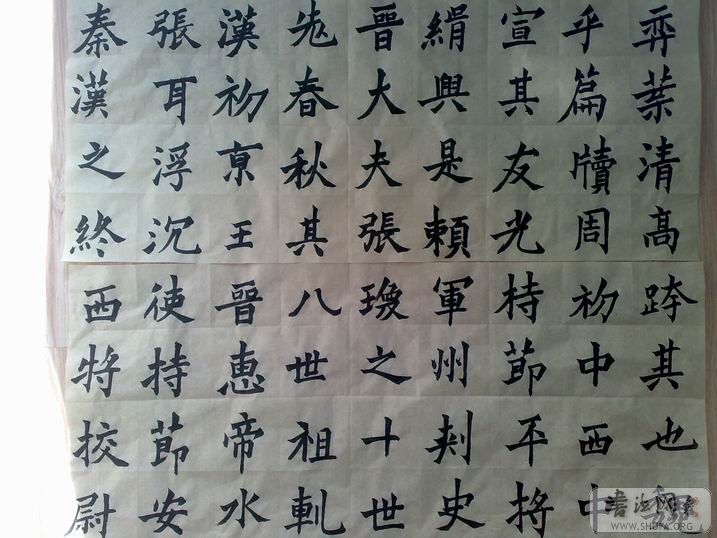 弈葉清高跨其也
乎篇牘周初中西中
宣其友光持節平将
絹興是頼軍州刾史
晉大夫張瓊之十世
春秋其八世祖軌
漢初京王晉恵帝水
張耳浮沉使持節安
秦漢之終西将挍尉
WWW.SHUFA.ORG